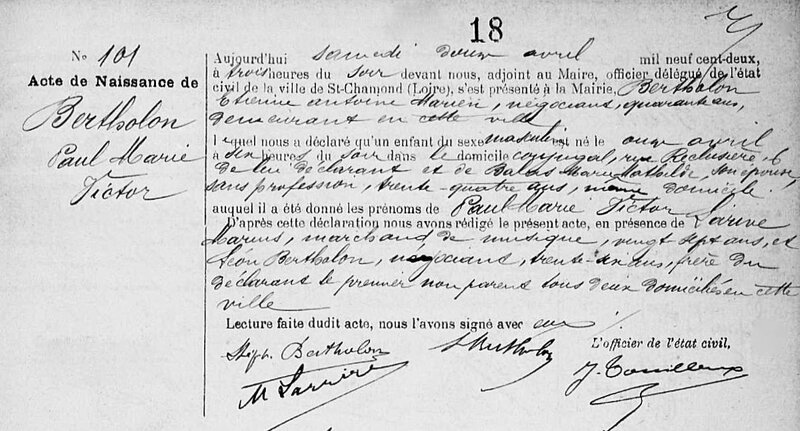 18
N° 101
Acte de Naissance de
Bertholon
Paul Marie
Victor
Aujourd'hui samedi douze avril mil neuf cent-deux,
à trois heures du soir devant nous, adjoint au Maire, officier délégué de l'état
civil de la ville de St-Chamond (Loire), s'est présenté à la Mairie, Bertholon
Etienne antoine Marien, négociant, quarante ans,
demeurant en cette ville
lequel nous a déclaré qu'un enfant du sexe masculin est né le onze avril
à six heures du soir dans le domicile conjugal, rue Réclusière 6
de lui déclarant et de Marie Mathilde, son épouse,
sans profession, trente-quatre ans, même domicile.
auquel il a été donné les prénoms de Paul Marie Victor
D'après cette déclaration nous avons rédigé le présent acte, en présence de
Marius, marchand de musique, vingt sept ans, et
Léon Bertholon, négociant, trente six ans, frère du
déclarant le premier non parent tous deux domiciliés en cette
ville
Lecture faite dudit acte, nous l'avons signé avec eux
Bertholon
L Bertholon
L'officier de l'état civil,
M